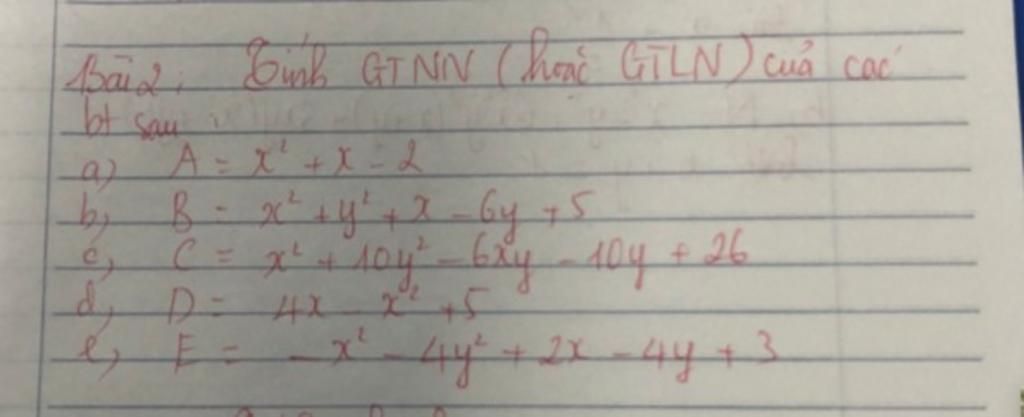 Bài 2: Tính GTNN (hoặc GTLN) của các
bt sau
a) A = x² + x - 2
b, B = x² + y² + x - 6y + 5
c, C = x² + 10y² - 6xy - 10y + 26
d, D = 4x - x² + 5
e, E = -x² - 4y² + 2x - 4y + 3